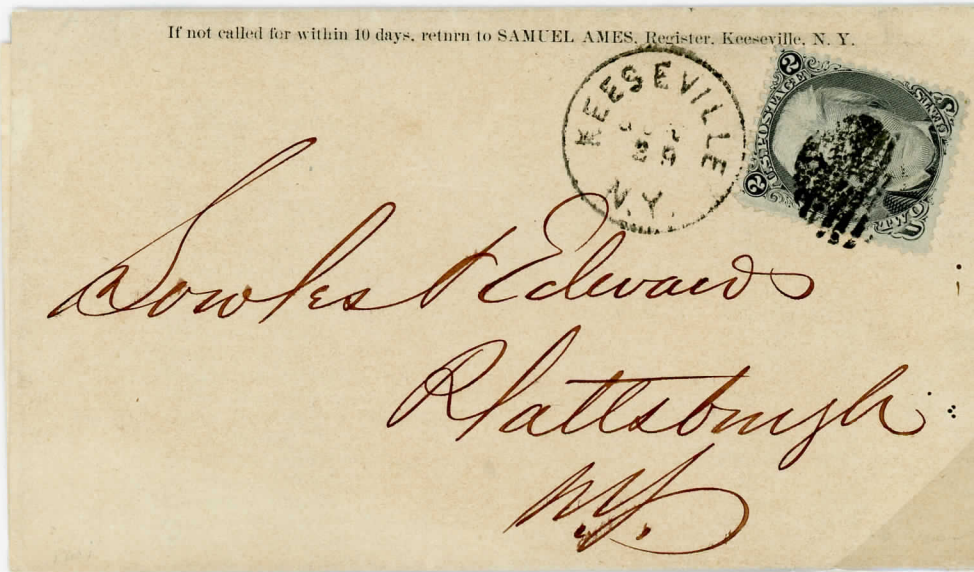 If not called for within 10 days, return to SAMUEL AMES, Register, Keeseville, N. Y.
KEESEVILLE
N.Y.
2 U.S. POSTAGE 2
TWO CENTS
& Edwards
Plattsburgh
N.Y.